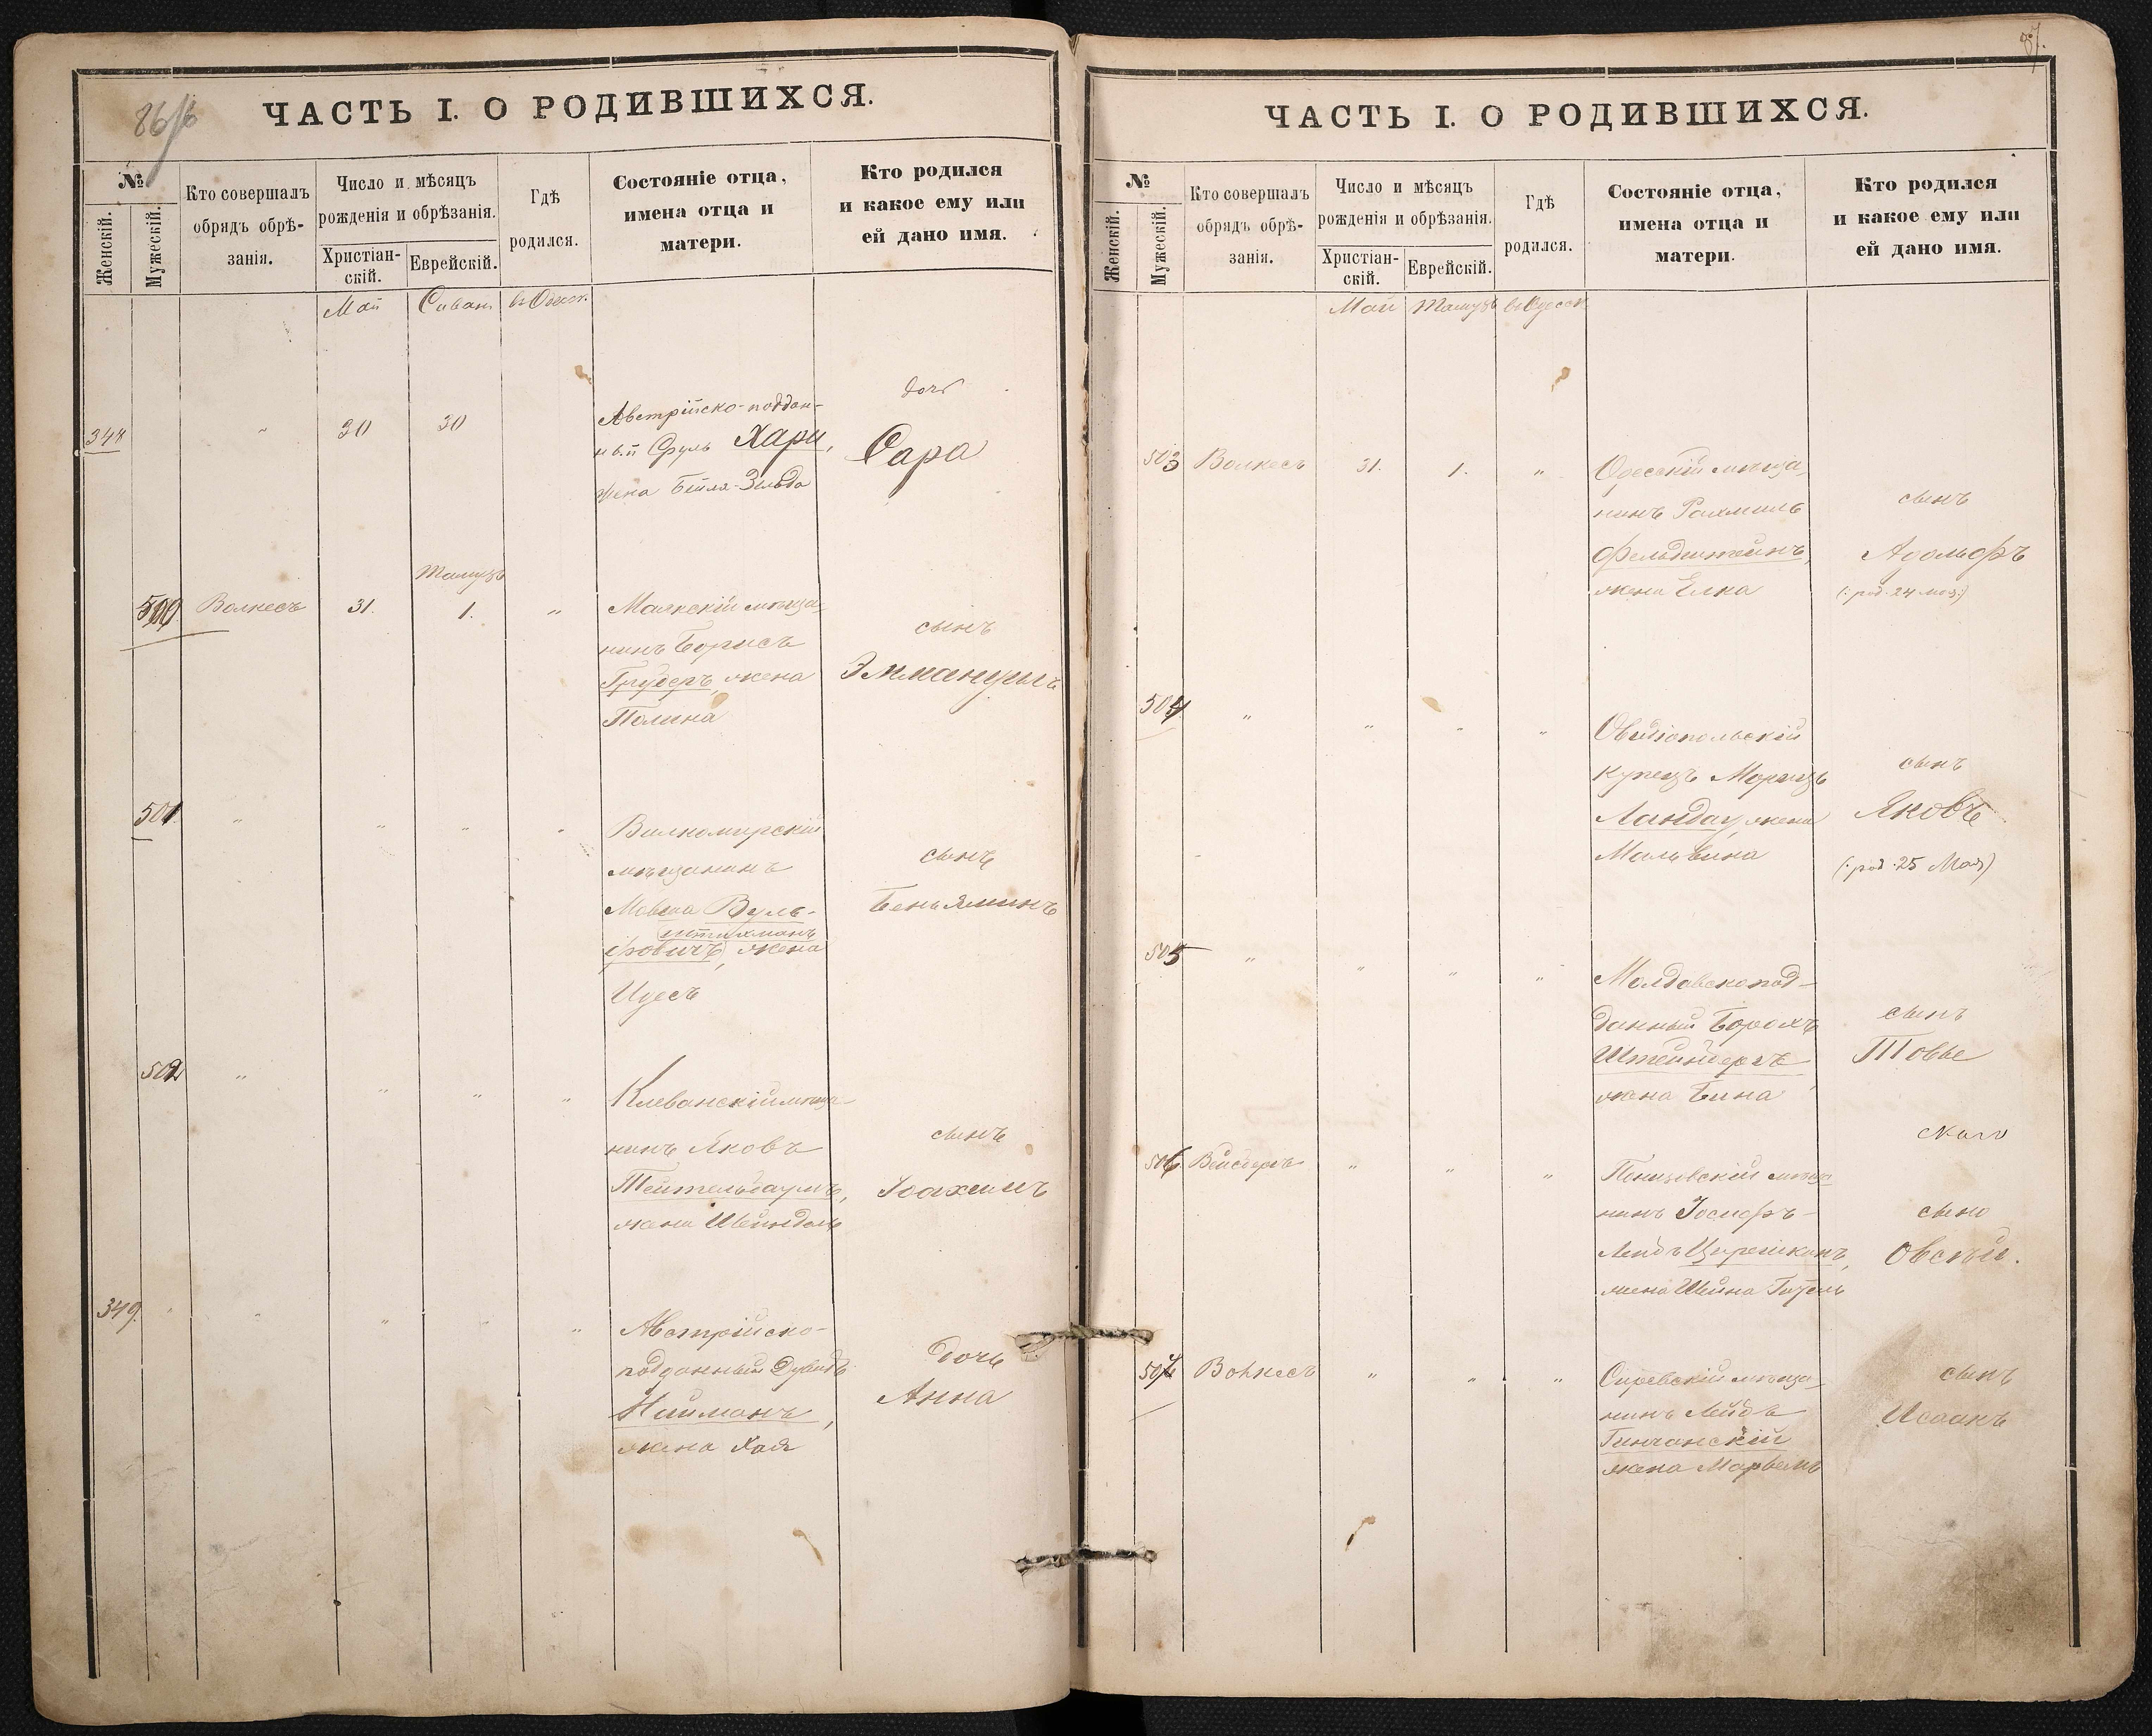 ЧАСТЬ I. О РОДИВШИХСЯ.
№
Женскій.
Мужескій.
Кто совершалъ
обрядъ обрѣ-
занія.
Число и мѣсяцъ
рожденія и обрѣзанія.
Христіан-
скій.
Еврейскій.
Гдѣ
родился.
Состояніе отца,
имена отца и
матери.
Кто родился
и какое ему или
ей дано имя.
Май Сиванъ
348 30 30
Австрійско-поддан-
ный Сруль Хари,
жена Бейля-Зельда
дочь
Сара
Тамузъ
500 Волкесъ 31. 1. "
Маякскій мѣща-
нинъ Борисъ
жена
Полина
сынъ
Эммануилъ
501 " " " "
Вилкомирскій
мѣщанинъ
Мовша Вуль-
фовичъ, жена
Идесъ
сынъ
Беньяминъ
502 " " " "
Клеванскій мѣща-
нинъ Яковъ
Тейтельбаумъ,
жена Шейндель
сынъ
Іоахимъ
349. " " " " "
Австрійско-
подданный Дувидъ
Найманъ,
жена Хая
дочь
Анна
87.
ЧАСТЬ I. О РОДИВШИХСЯ.
№
Женскій.
Мужескій.
Кто совершалъ
обрядъ обрѣ-
занія.
Число и мѣсяцъ
рожденія и обрѣзанія.
Христіан-
скій.
Еврейскій.
Гдѣ
родился.
Состояніе отца,
имена отца и
матери.
Кто родился
и какое ему или
ей дано имя.
Май Тамузъ въ Одессѣ
503 Волкесъ 31. 1. "
Одесскій мѣща-
нинъ Рахмиль
Фельдштейнъ,
жена Елка
сынъ
Адольфъ
(: род. 24 мая :)
504 " " " "
Овидіопольскій
купецъ Морицъ
Ландау, жена
Мальвина
сынъ
Яковъ
(: род. 25 Мая)
505 " " " "
Молдавскопод-
данный Борохъ
Штейнбергъ
жена Бина
сынъ
Товье
506 Вейсбергъ " " "
мѣща-
нинъ Іосифъ-
Лейбъ
жена Шейна Гитель
сынъ
Овсѣй.
507 Волкесъ " " "
мѣща-
нинъ Лейбъ
жена
сынъ
Исаакъ